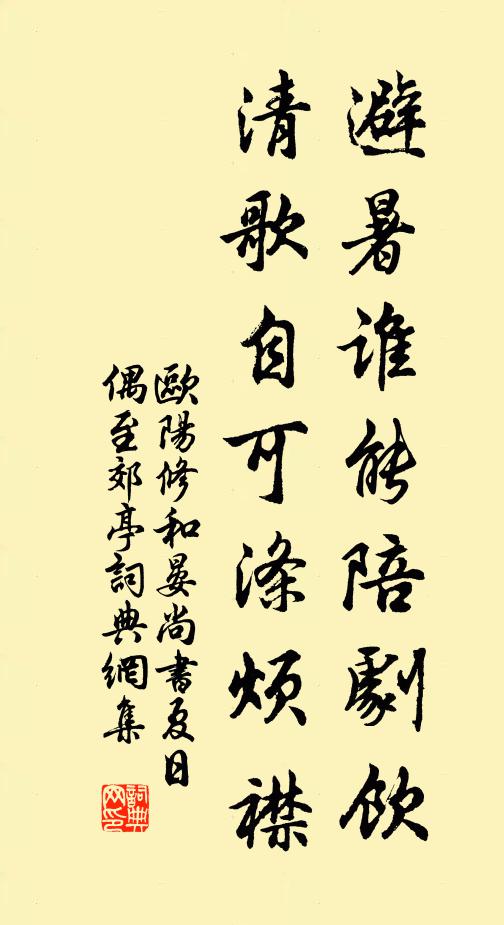 避暑誰能陪劇飲
清歌自可滌煩襟
歐陽修和晏尚書夏日
偶至郊亭詞典網集
詞典
网印